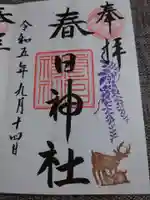 奉拝
春日神社
令和五年九月十四日